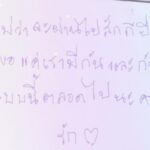 ม่ว่าจะผ่านไปสักกี่ปี
ขอแค่เรามีกันและกั
แบบนี้ตลอดไปนะค
รัก ♡